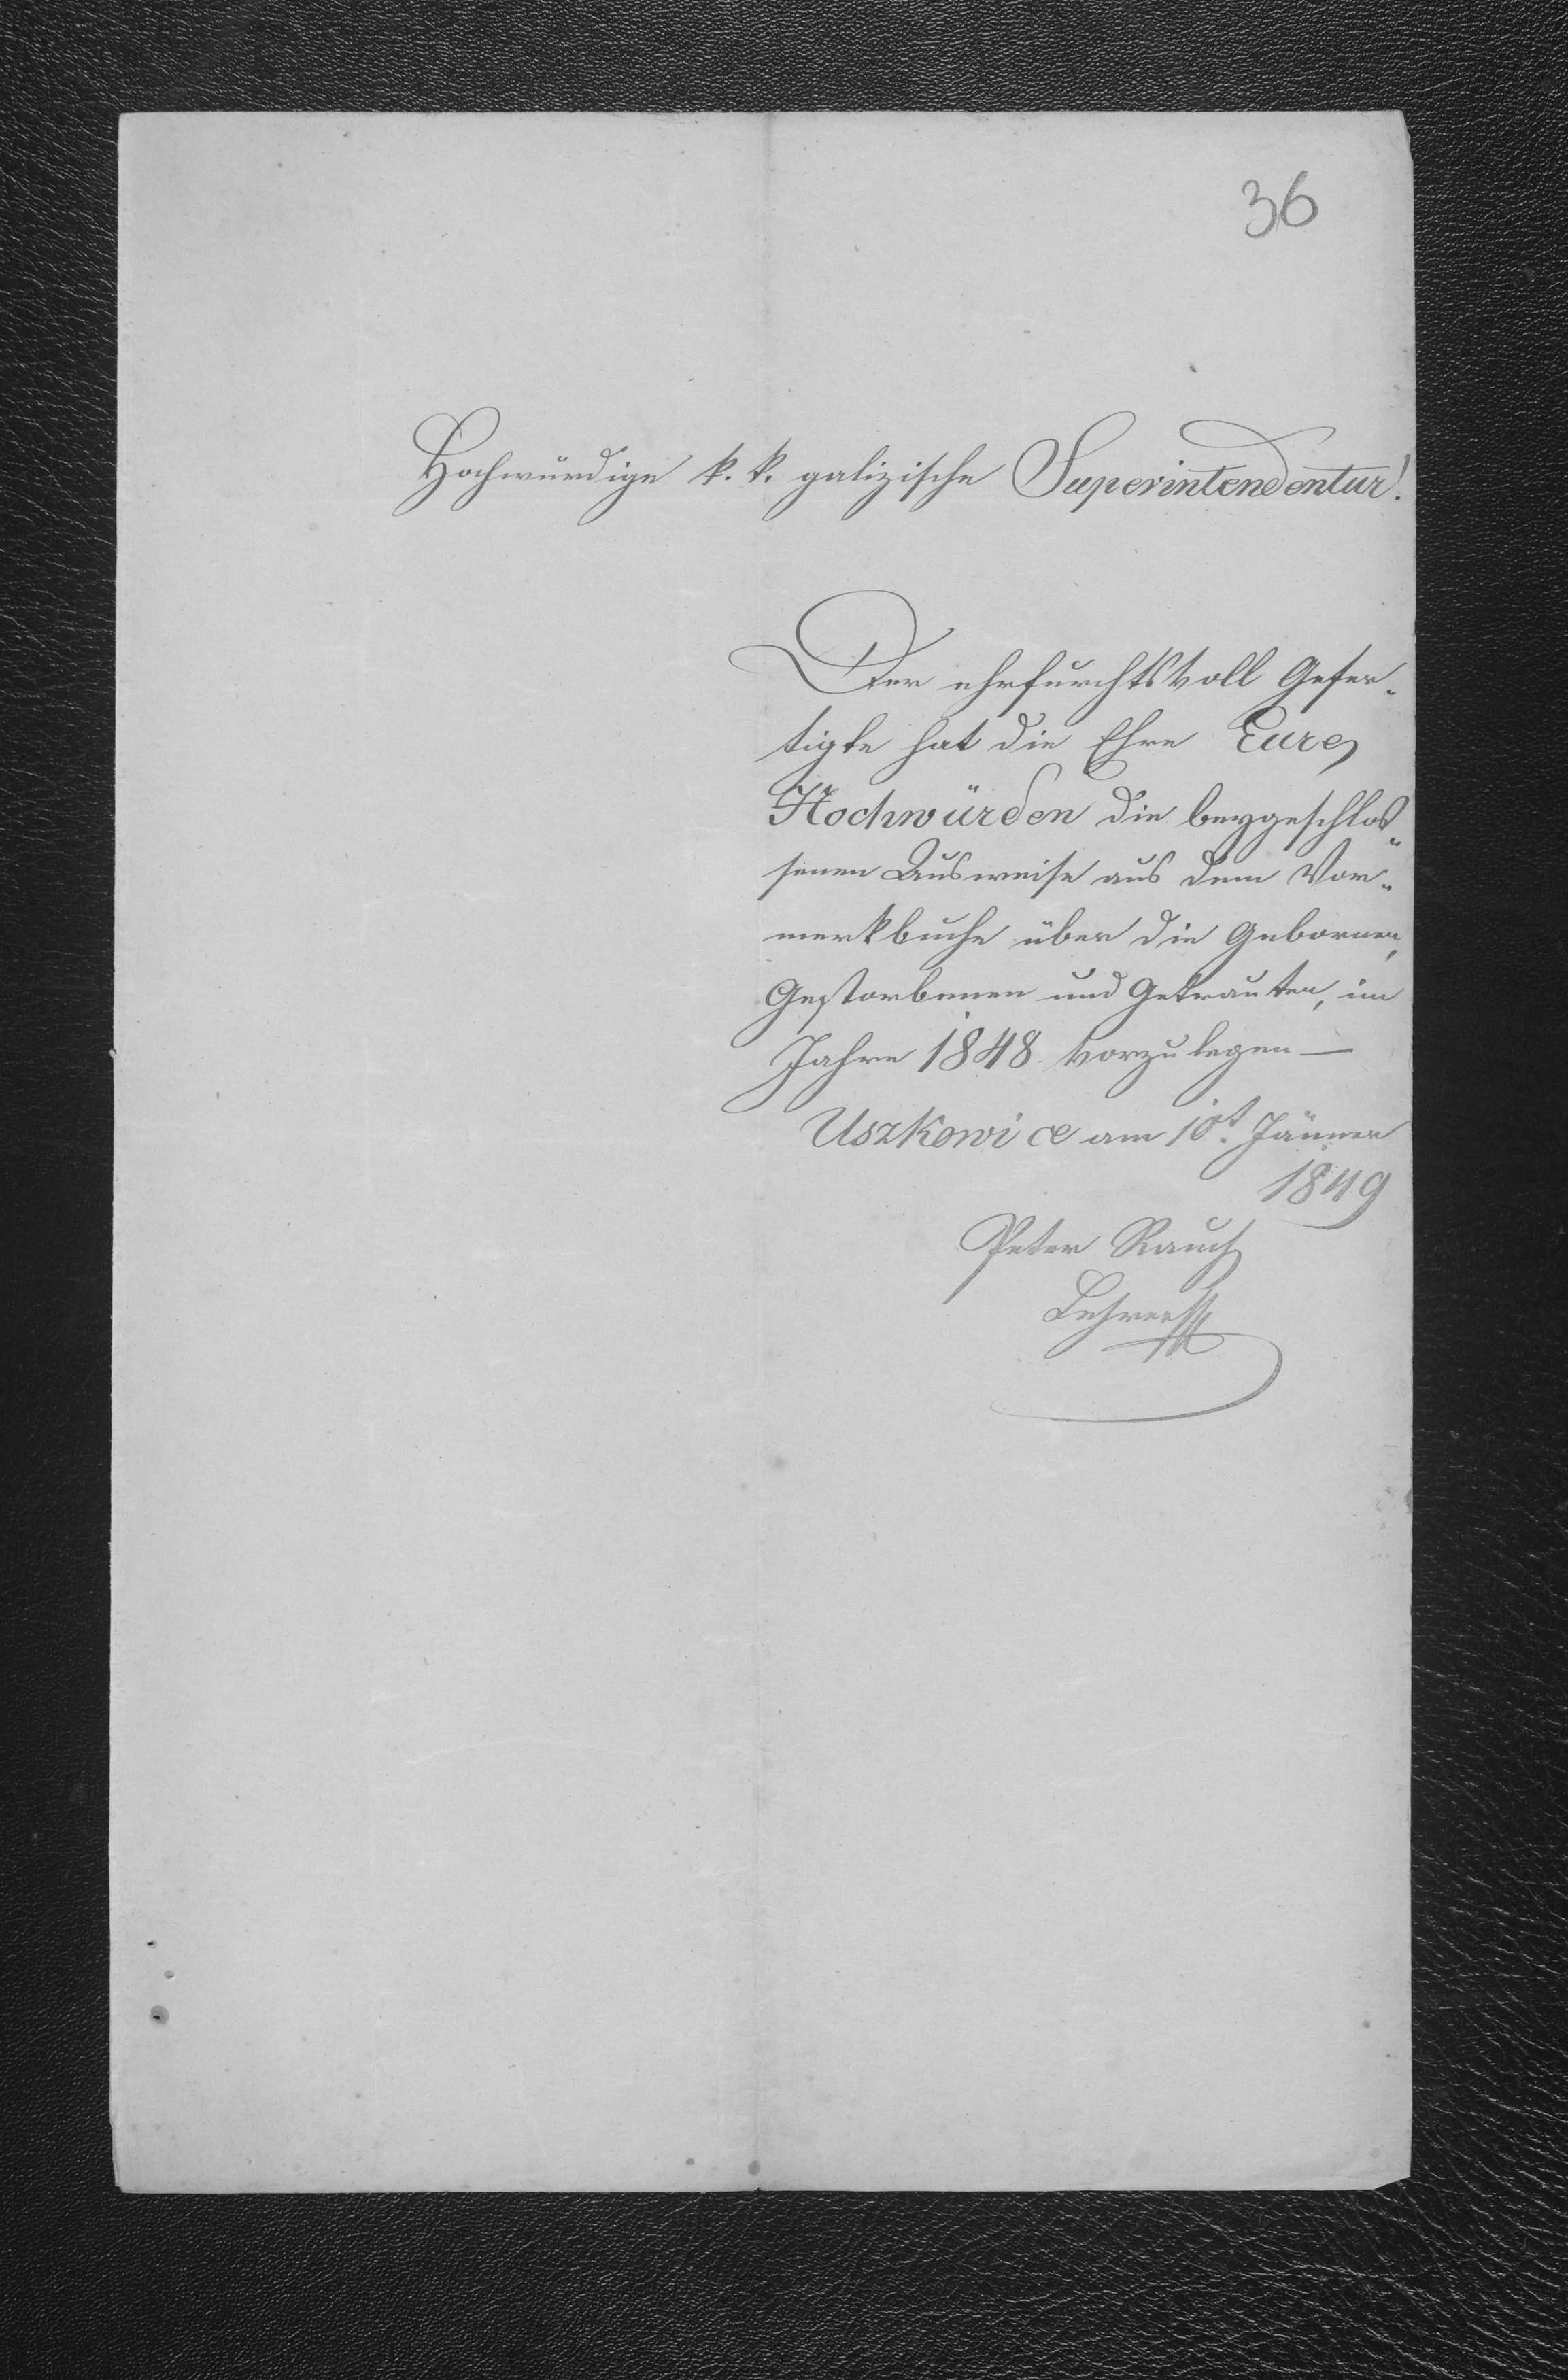 36
Hochwürdige k. k. galizische Superintendentur!
Der ehrfurchtsvoll Gefer-
tigte hat die Ehre Eure
Hochwürden die beygeschlos-
senen Ausweise aus dem Vor-
merkbuche über die Gebornen,
Gestorbenen und Getrauten, im
Jahre 1848 vorzulegen —
Uszkowice am 10t. Jänner
1849
Peter Rauch
Lehrer